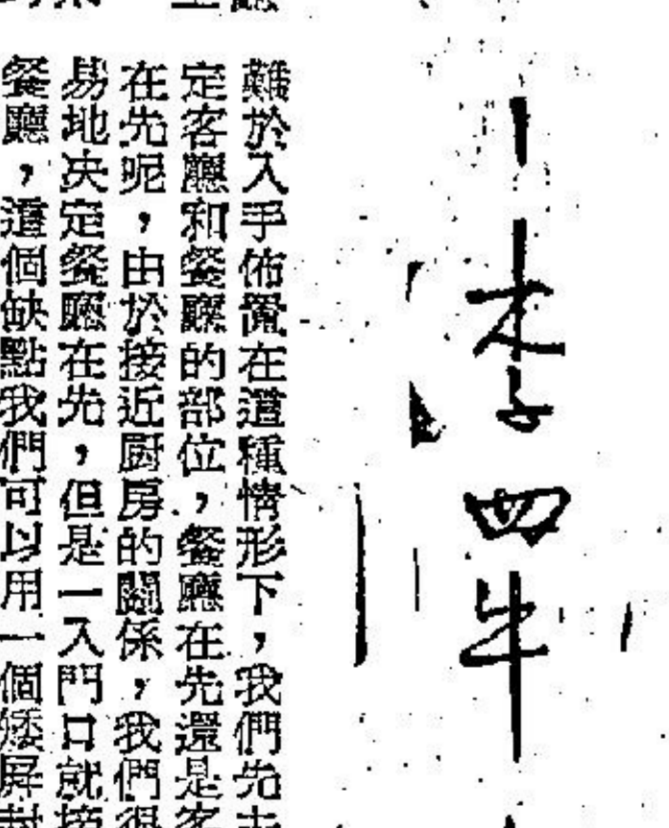 李四牛
難於入手佈置在這種情形下，我們先
定客廳和餐廳的部位，餐廳在先還是客
在先呢，由於接近厨房的關係，我們很
易地决定餐廳在先，但是一入門口就接
餐廳，這個缺點我們可以用一個矮屏